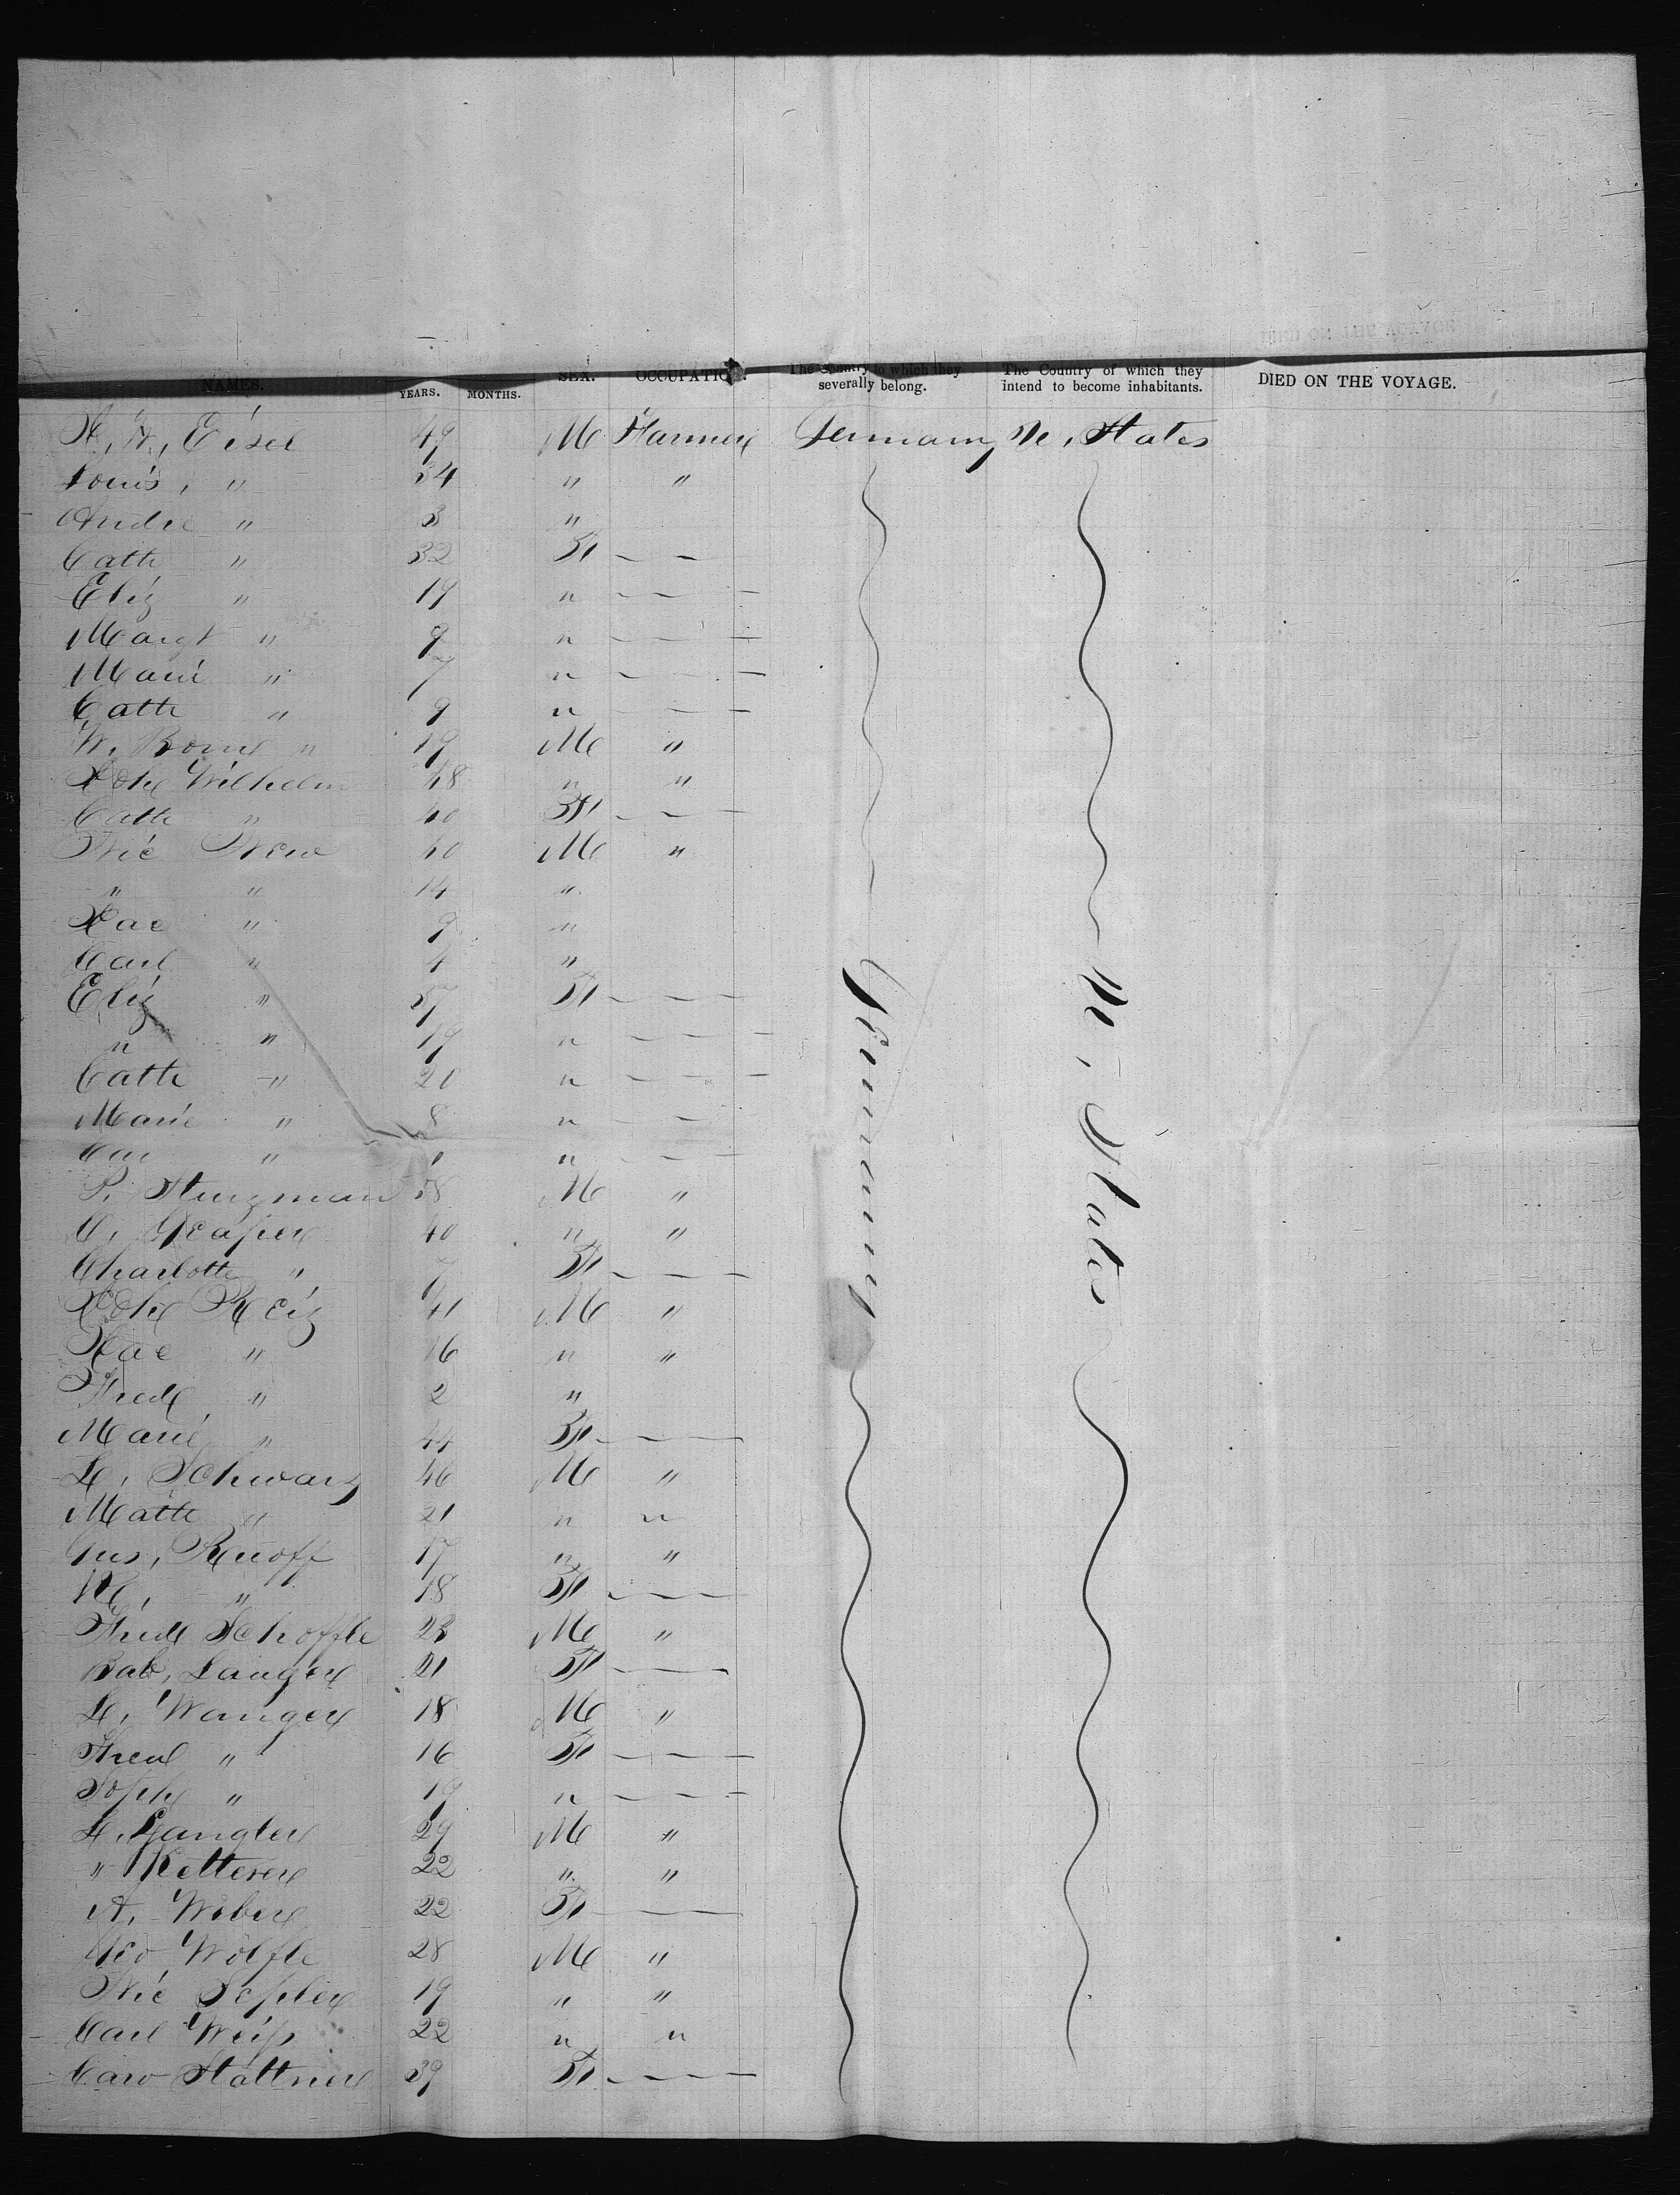 NAMES. YEARS. MONTHS. SEX. OCCUPATION. The Country to which they severally belong. The Country of which they intend to become inhabitants. DIED ON THE VOYAGE.
Eisel 49 M Farmer Germany U. States
Louis, " 34 " "
Andre " 3 "
Cath " 32 F — —
Eliz " 19 " — — —
Margt " 9 " — — —
Marie " 7 " — — —
Cath " 9 " — — —
W. " 19 M "
Joh Wilhelm 48 " "
Cath " 40 F — —
Nic New 40 M "
" " 14 "
Jac " 9 "
Carl " 4 "
Eliz " 37 F — — —
" " 19 " — — —
Cath " 20 " — — —
Marie " 8 " — —
" " — —
P. Sturzman 58 M "
C. 40 " "
Charlotte " 7 F — — —
Joh Reiz 41 M "
Jac " 16 " "
Fred " 2 "
Marie " 44 F — —
L. Schwarz 46 M "
Math " 21 " "
Gus, Ruoff 17 " "
" 18 F — —
Fred Schoffle 23 M "
Bab, Langer 21 F — —
L. Wanger 18 M "
" 16 F — — —
Soph " 19 " — — —
L. Gangler 29 M "
" Ketterer 22 " "
A. Weber 22 F — —
Geo Wolfle 28 M "
Nic Sepler 19 " "
Carl Weiss 22 " "
Caro Stattner 39 F — — —
Germany
U. States